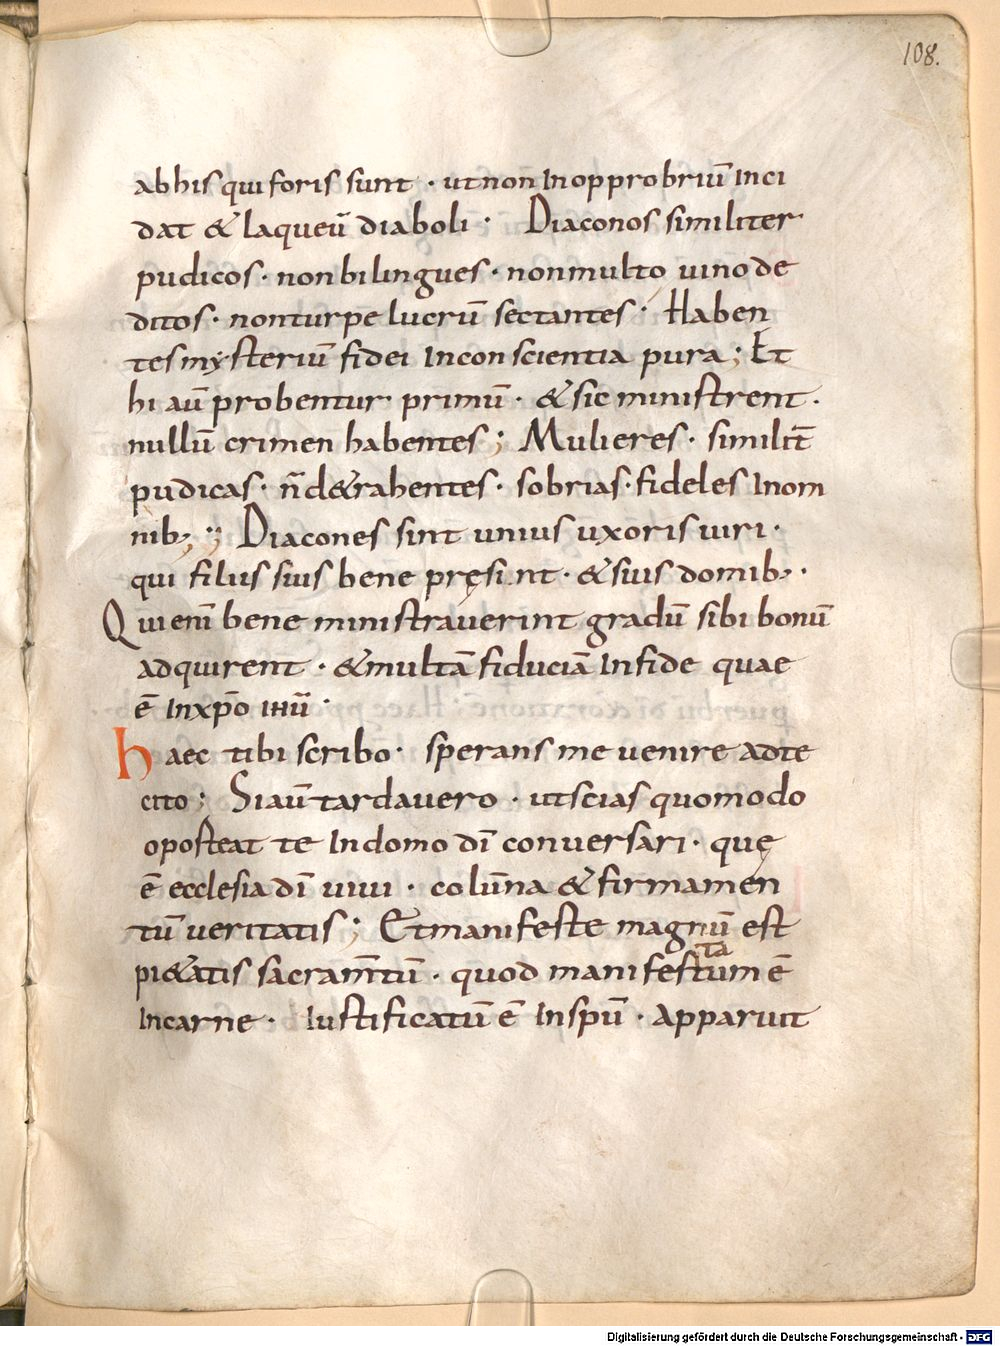 108.
ab his qui foris sunt · ut non In opprobriū Inci
dat & laqueū diaboli · Diaconos similiter
pudicos · non bilingues · non multo uino de
ditos · non turpe lucrū sectantes · Haben
tes mysteriū fidei In conscientia pura ; Et
hi aū probentur primū · & sic ministrent ·
nullū crimen habentes ; Mulieres · similit̄
pudicas · n̄ d&rahentes · sobrias · fideles In om
nib; ; Diacones sint unius uxoris uiri ·
qui filiis suis bene pręsint · & suis domib; ·
Qui enī bene ministrauerint gradū sibi bonū
adquirent · & multā fiduciā In fide quae
ē In xp̄o ihū ·
haec tibi scribo · sperans me uenire ad te
cito ; Si aū tardauero · ut scias quomodo
oposteat te In domo dī conuersari · quę
ē ecclesia dī uiui · colūna & firmamen
tū ueritatis ; Et manifeste magnū est
pi&atis sacram̄tū · quod manifestum ē
ta
In carne · Iustificatū ē In sp̄u · Apparuit
Digitalisierung gefördert durch die Deutsche Forschungsgemeinschaft - DFG